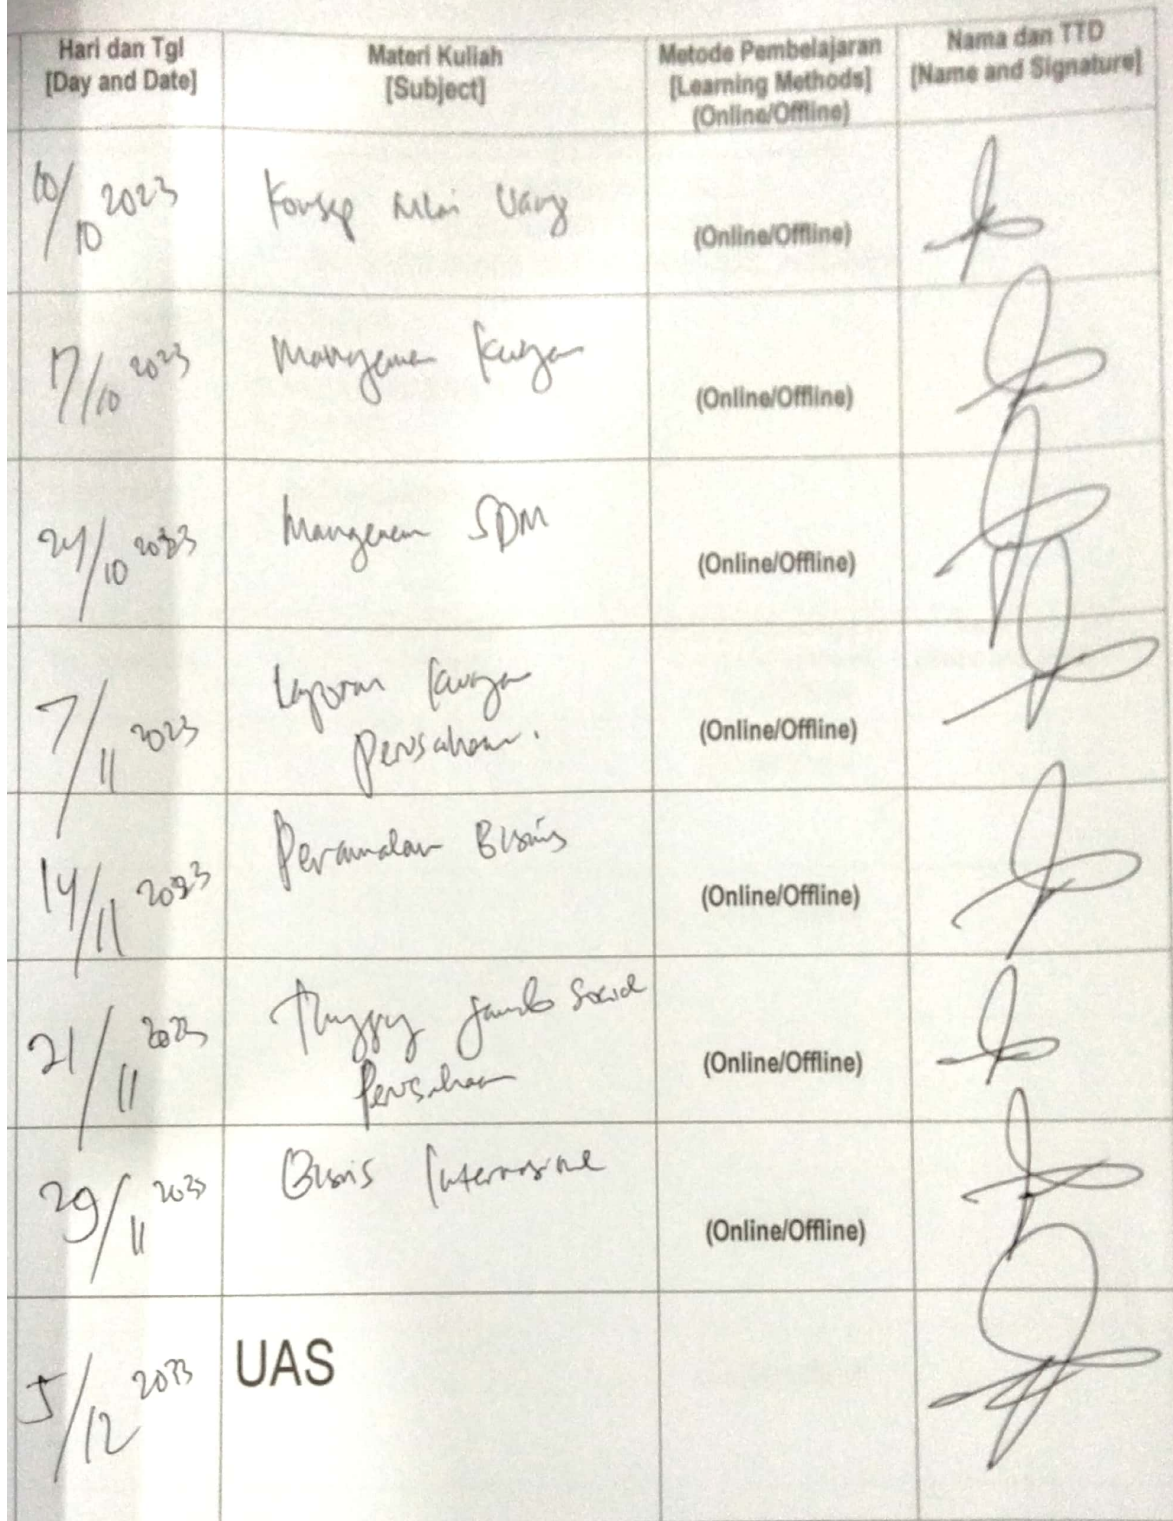 Hari dan Tgl
[Day and Date]
Materi Kuliah
[Subject]
Metode Pembelajaran
[Learning Methods]
(Online/Offline)
Nama dan TTD
[Name and Signature]
10/10 2023
Konsep Nilai Uang
(Online/Offline)
17/10 2023
(Online/Offline)
24/10 2023
SDM
(Online/Offline)
7/11 2023
Laporan
Perusahaan.
(Online/Offline)
14/11 2023
Peramalan Bisnis
(Online/Offline)
21/11 2023
Perusahaan
(Online/Offline)
29/11 2023
Bisnis
(Online/Offline)
5/12 2023
UAS